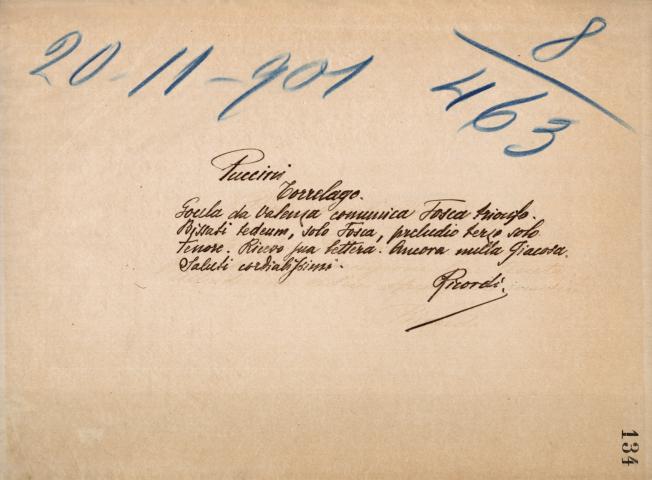 20-11-901
8
463
Puccini
Torrelago.
Goula da Valenza comunica Tosca trionfo.
Bissati tedeum, solo Tosca, preludio terzo solo
tenore. Ricevo sua lettera. Ancora nulla Giacosa.
Saluti cordialissimi.
Ricordi.
134